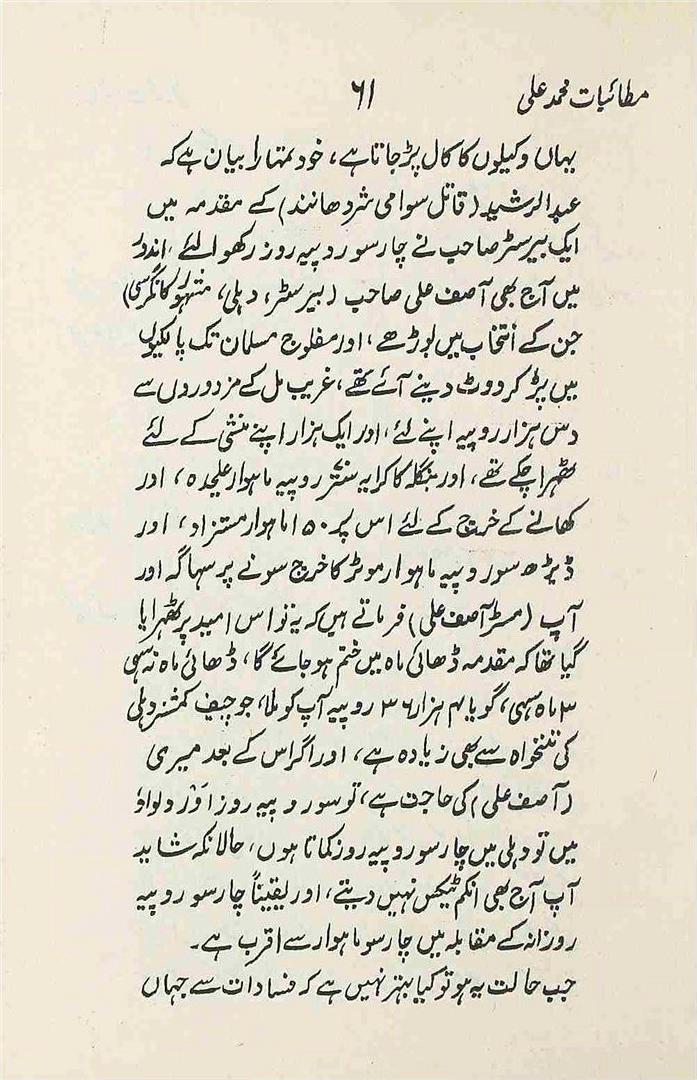 مطائبات محمد علی
۶۱
یہاں وکیلوں کا کال پڑجاتا ہے، خود تمہارا بیان ہے کہ
عبدالرشید (قاتل سوامی شردھانند) کے مقدمہ میں
ایک بیرسٹر صاحب نے چار سو روپیہ روز رکھوا لئے، اندور
میں آج بھی آصف علی صاحب (بیرسٹر، دہلی، مشہور کانگرسی)
جن کے انتخاب میں بوڑھے، اور مفلوج مسلمان تک پالکیوں
میں پڑ کر ووٹ دینے آئے تھے، غریب مل کے مزدوروں سے
دس ہزار روپیہ اپنے لئے، اور ایک ہزار اپنے منشی کے لئے
ٹھہرا چکے تھے، اور بنگلہ کا کرایہ ستر روپیہ ماہوار علیحدہ، اور
کھانے کے خرچ کے لئے اس پر ۱۵۰ ماہوار مستزاد، اور
ڈیڑھ سو روپیہ ماہوار موٹر کا خرچ سونے پر سہاگہ اور
آپ (مسٹر آصف علی) فرماتے ہیں کہ یہ تو اس امید پر ٹھہرایا
گیا تھا کہ مقدمہ ڈھائی ماہ میں ختم ہو جائے گا، ڈھائی ماہ نہ سہی
۳ ماہ سہی، گویا ۴ ہزار ۳۶ روپیہ آپ کو ملا، جو چیف کمشنر دہلی
کی تنخواہ سے بھی زیادہ ہے، اور اگر اس کے بعد میری
(آصف علی) کی حاجت ہے، تو سو روپیہ روز اَوْر دلواؤ
میں تو دہلی میں چار سو روپیہ روز کماتا ہوں، حالانکہ شاید
آپ آج بھی انکم ٹیکس نہیں دیتے، اور یقیناً چار سو روپیہ
روزانہ کے مقابلہ میں چار سو ماہوار سے اقرب ہے۔
جب حالت یہ ہو تو کیا بہتر نہیں ہے کہ فسادات سے جہاں